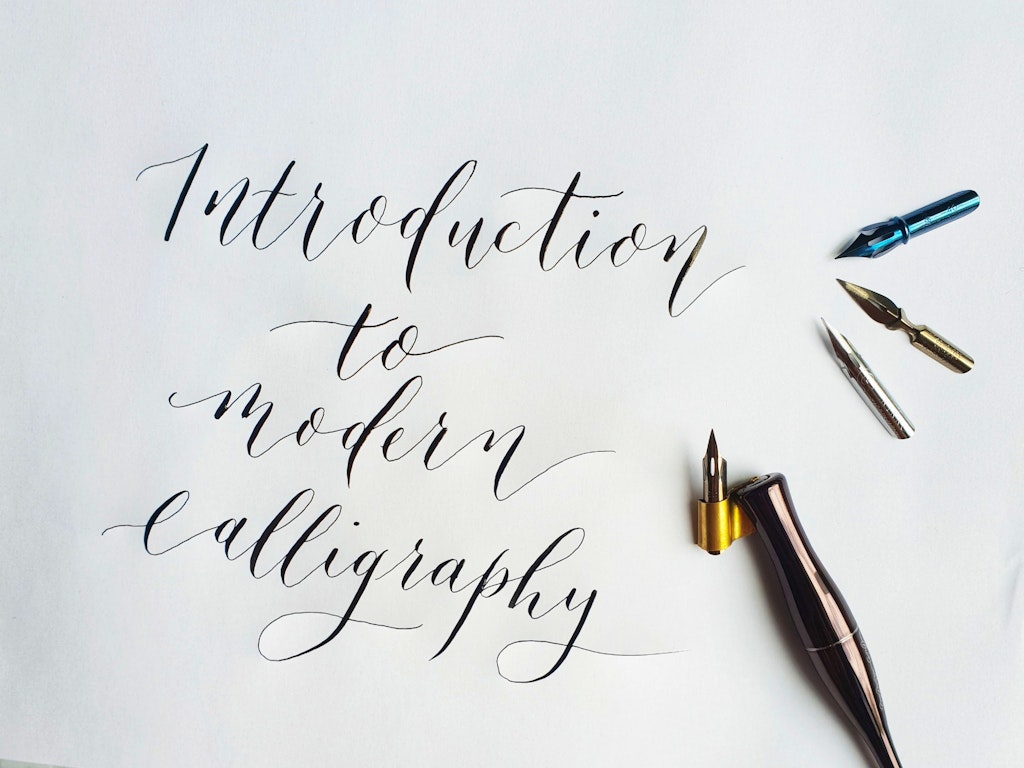 Introduction
to
modern
Calligraphy